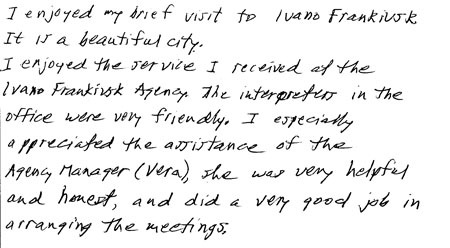 I enjoyed my brief visit to Ivano Frankivsk
It is a beautiful city.
I enjoyed the service I received at the
Ivano Frankivsk Agency. The interpreters in the
office were very friendly. I especially
appreciated the assistance of the
Agency Manager (Vera), she was very helpful
and honest, and did a very good job in
arranging the meetings.